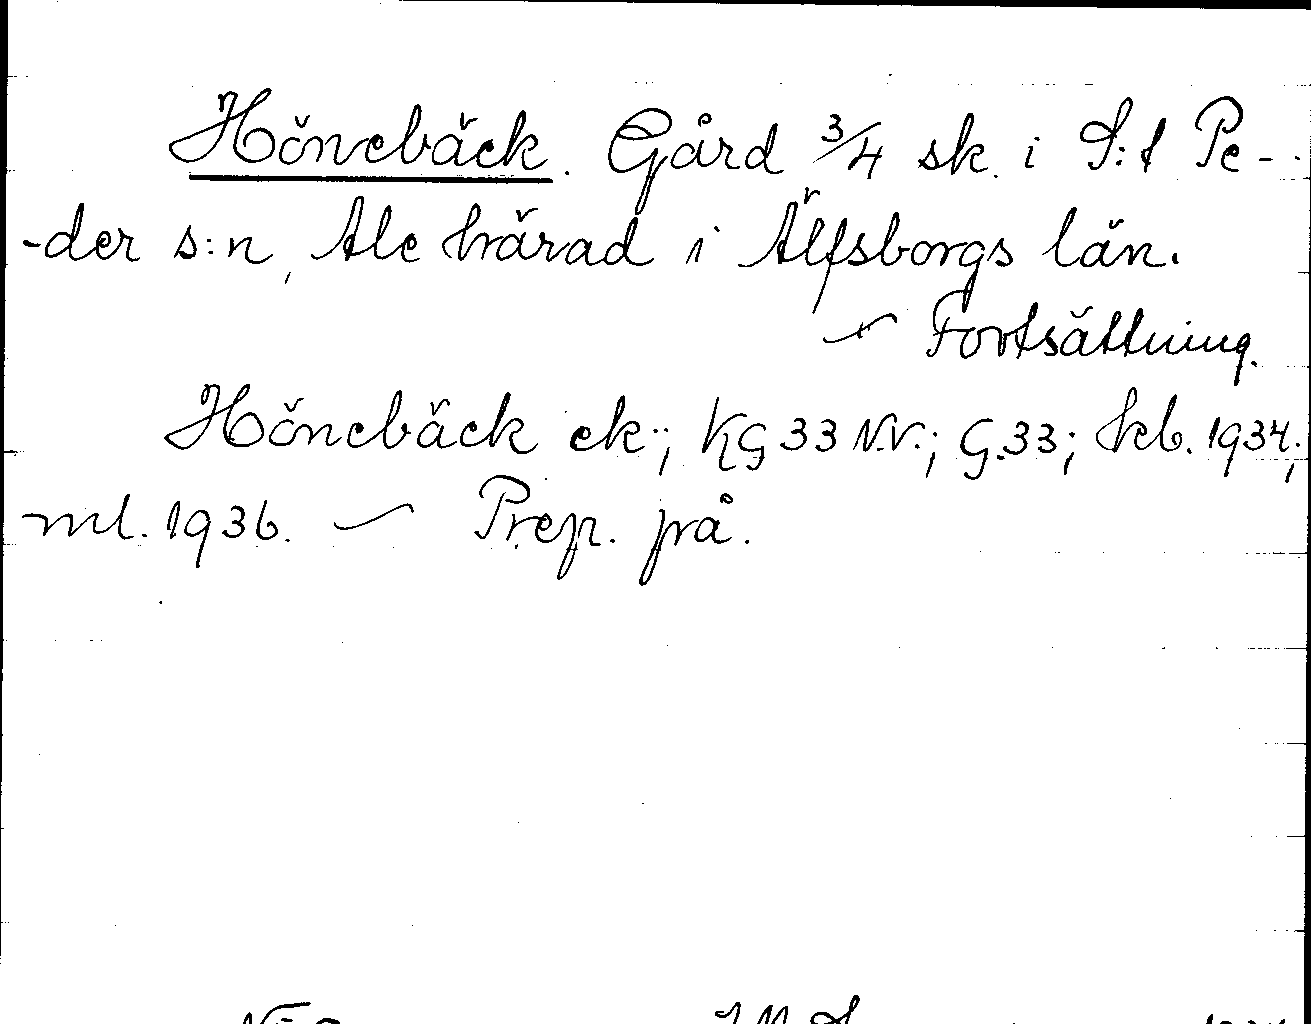 Hönebäck. Gård 3/4 sk. i S:t Pe-
-der s:n, Ale härad i Älfsborgs län.
~ Fortsättning.
Hönebäck ek.; KG 33 N.V.; G.33; Jkb. 1934;
ml. 1936. ~ Prep. på.